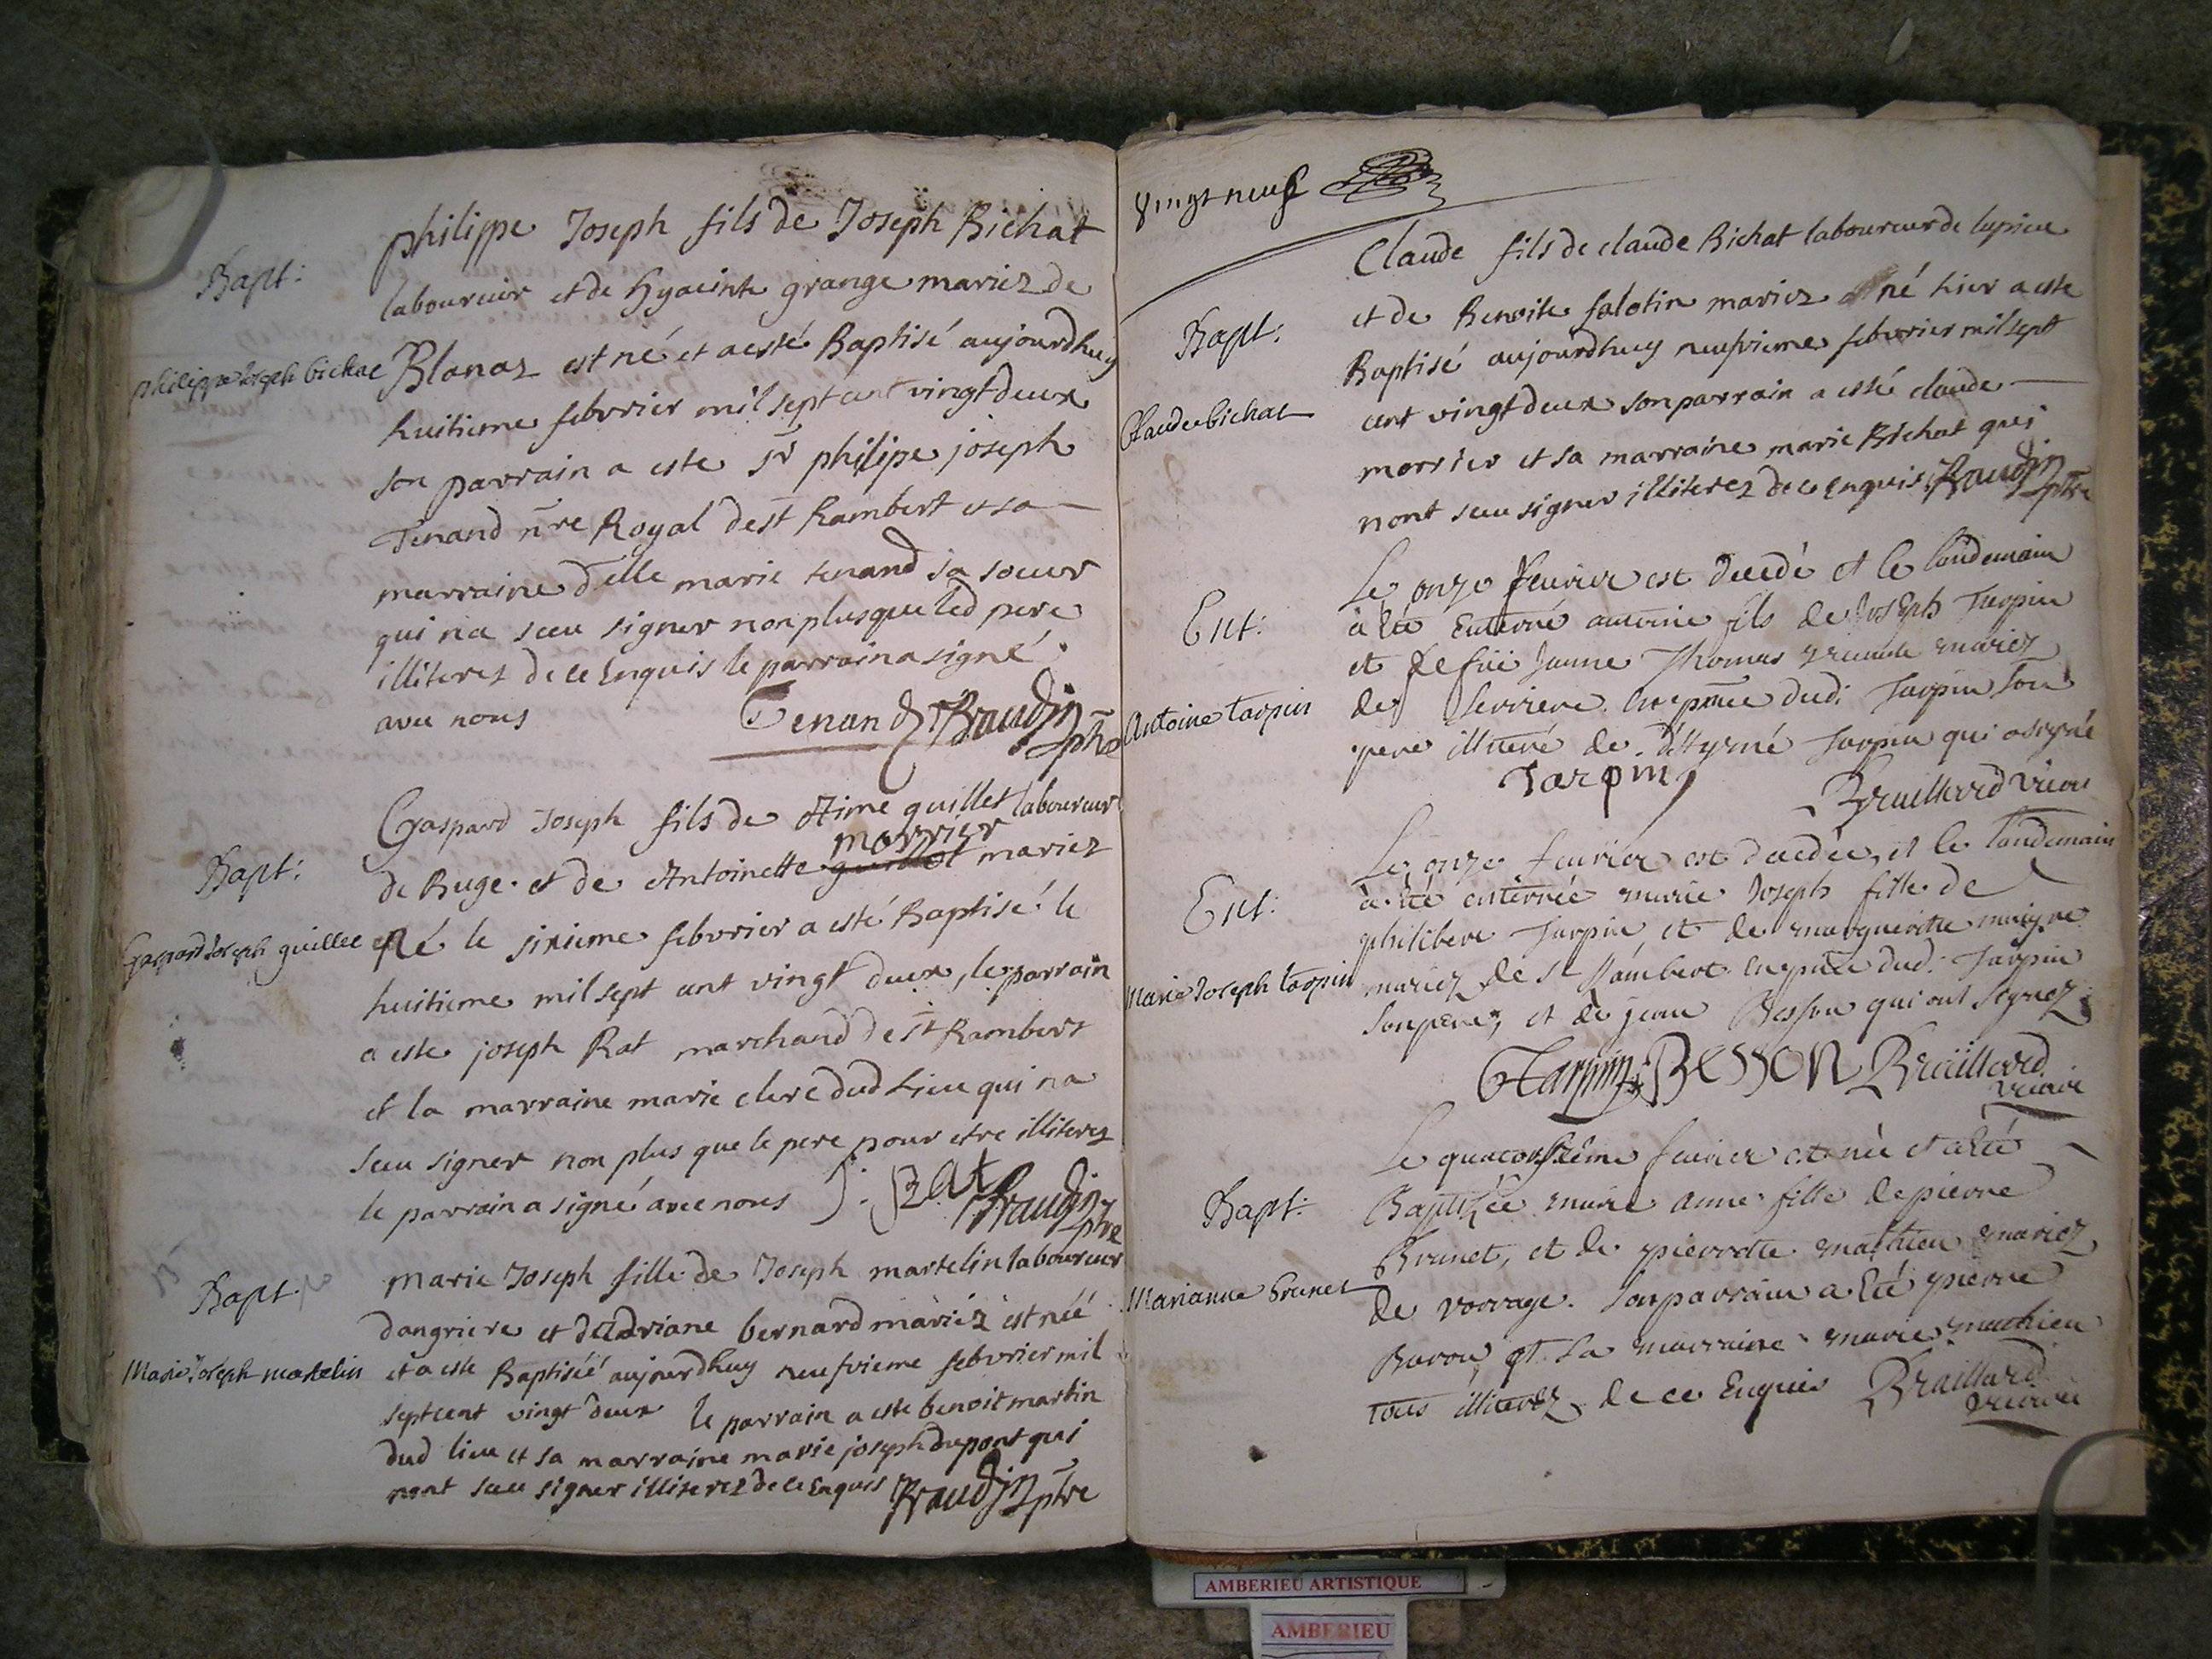 Bapt:
philippe Joseph bichat
philippe Joseph fils de Joseph Bichat
laboureur et de Hyacinte grange mariez de
Blanaz est né et a esté Baptisé aujourdhuy
huitieme febvrier mil sept cent vingt deux
son parrain a este sr philipe joseph
Tenand nre Royal de st Rambert et sa
marraine delle marie tenand sa soeur
qui na sceu signer non plus que led pere
illiterez de ce Enquis le parrain a signé
avec nous
Tenand Braudin
ptre
Bapt:
Gaspard Joseph guillet
Gaspard Joseph fils de Aime guillet laboureur
morrier
de Buge et de Antoinette mariez
né le sixieme febvrier a esté Baptisé le
huitieme mil sept cent vingt deux, le parrain
a este joseph Rat marchand de st Rambert
et la marraine marie clerc dud Lieu qui na
sceu signer non plus que le pere pour etre illiterez
le parrain a signé avec nous J. Rat
Braudin
ptre
Bapt.
Marie Joseph martelin
Marie Joseph fille de Joseph martelin laboureur
dangriere et dadriane bernard mariéz est néé
et a este Baptiséé aujourdhuy neufvieme febvrier mil
sept cent vingt deux le parrain a este benoit martin
dud lieu et sa marraine marie joseph dupont qui
nont sceu signer illiterez de ce Enquis Braudin ptre
vingt neuf
Bapt:
Claude bichat
Claude fils de claude Bichat laboureur de lupieu
et de Benoite salotin mariez né hier a este
Baptisé aujourdhuy neufvieme febvrier mil sept
cent vingt deux son parrain a esté claude
morrier et sa marraine marie Bichat qui
nont sceu signer illiterez de ce Enquis Braudin
ptre
Ent:
Antoine tarpin
Le onze feuvrier est decedé et le landemain
à eté Enterré antoine fils de Joseph Tarpin
et de füe Janne Thomas mariez
de Serriere En pnce dud: Tarpin son
pere illiteré de Tarpin qui a signé
Tarpin
Braillard vicaire
Ent:
Marie Joseph tarpin
Le onze feuvrier est decedée, et le landemain
à eté enterrée marie Joseph fille de
philibert Tarpin, et de margueritte maigre
mariez de St Rambert en pnce dud: Tarpin
son pere, et de jean Besson qui ont signez
Tarpin BESSON Braillard
vicaire
Bapt:
Marianne brunet
Le quatorsieme feuvrier est née et a eté
Baptizée marie anne fille de pierre
Brunet, et de pierrette mathieu mariez
de vorrage. Son parrain a eté pierre
Baron, et sa marraine marie mathieu
tous illiterez de ce Enquis Braillard
vicaire
AMBERIEU ARTISTIQUE
AMBERIEU